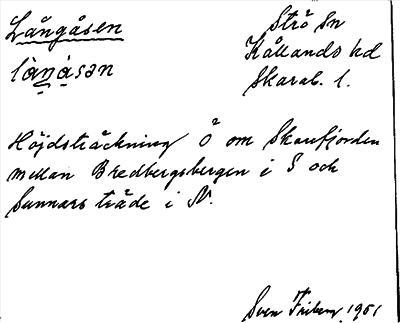 Långåsen
Strö Sn
Kållands hd
Skarab. l.
låŋåsən
Höjdsträckning Ö om Skarsfjorden
mellan Bredbergsbergen i S och
Sunnars träde i N.
Sven Friberg 1951